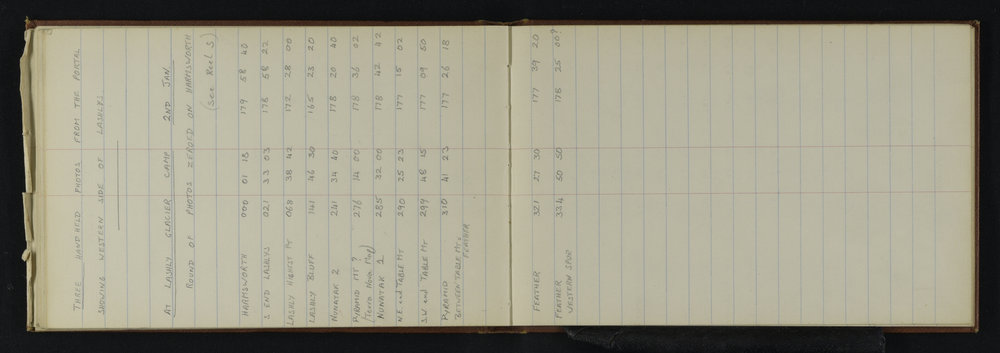 THREE HAND HELD PHOTOS FROM THE PORTAL
SHOWING WESTERN SIDE OF LASHLYS.
AT LASHLY GLACIER CAMP 2ND JAN
ROUND OF PHOTOS ZEROED ON HARMSWORTH
(See Reel 5)
HARMSWORTH 000 01 18 179 58 40
S END LASHLYS 021 33 03 178 58 22
LASHLY HIGHEST MT 068 38 42 172 28 00
LASHLY BLUFF 141 46 30 165 23 20
NUNATAK 2 241 34 40 178 20 40
PYRAMID MT ? 276 14 00 178 36 02
(Terra Nova Map)
NUNATAK 1 285 32 00 178 42 42
N.E. end TABLE MT 290 25 23 177 15 02
S.W. end TABLE MT 299 48 15 177 09 50
PYRAMID 310 41 23 177 26 18
BETWEEN TABLE MT &
FEATHER
FEATHER 321 27 30 177 39 20
FEATHER 334 50 50 178 25 00?
WESTERN SPUR